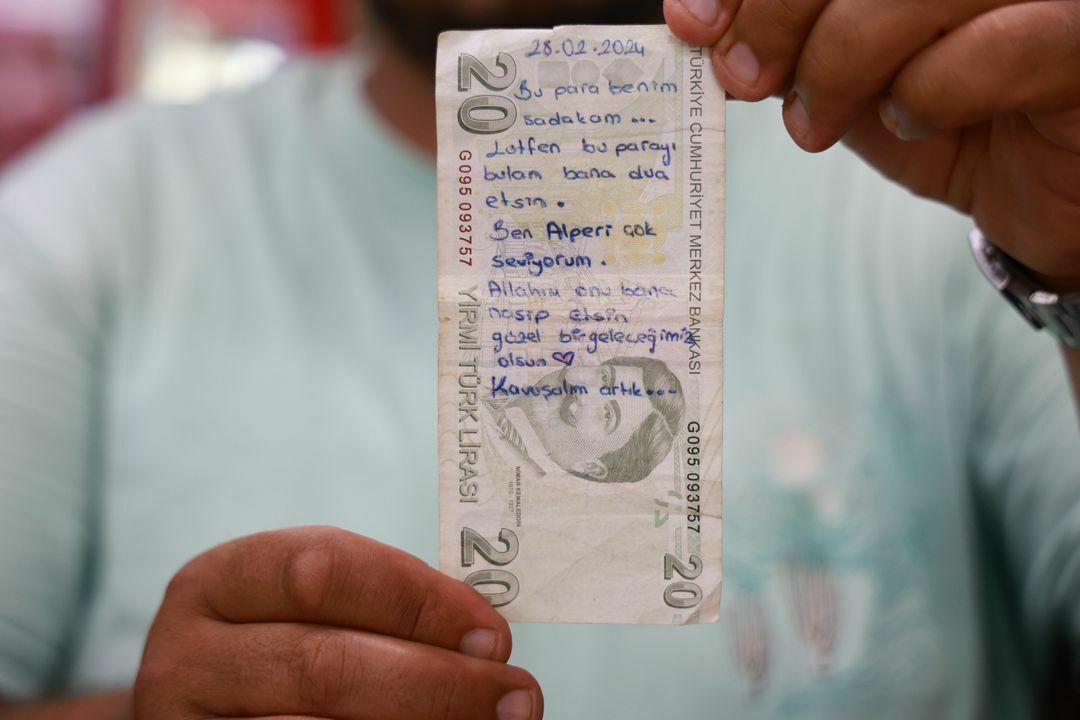 28.02.2024
Bu para benim
sadakam ...
Lutfen bu parayı
bulam bana dua
etsin.
Ben Alperi çok
seviyorum.
Allahım onu bana
nasip etsin
güzel birgeleceğimiz
olsun
Kavuşalım artık....
20
G095 093757
YİRMİ TÜRK LİRASI
20
TÜRKİYE CUMHURİYET MERKEZ BANKASI
G095 093757
20
MİMAR KEMALEDDİN
1870 - 1927